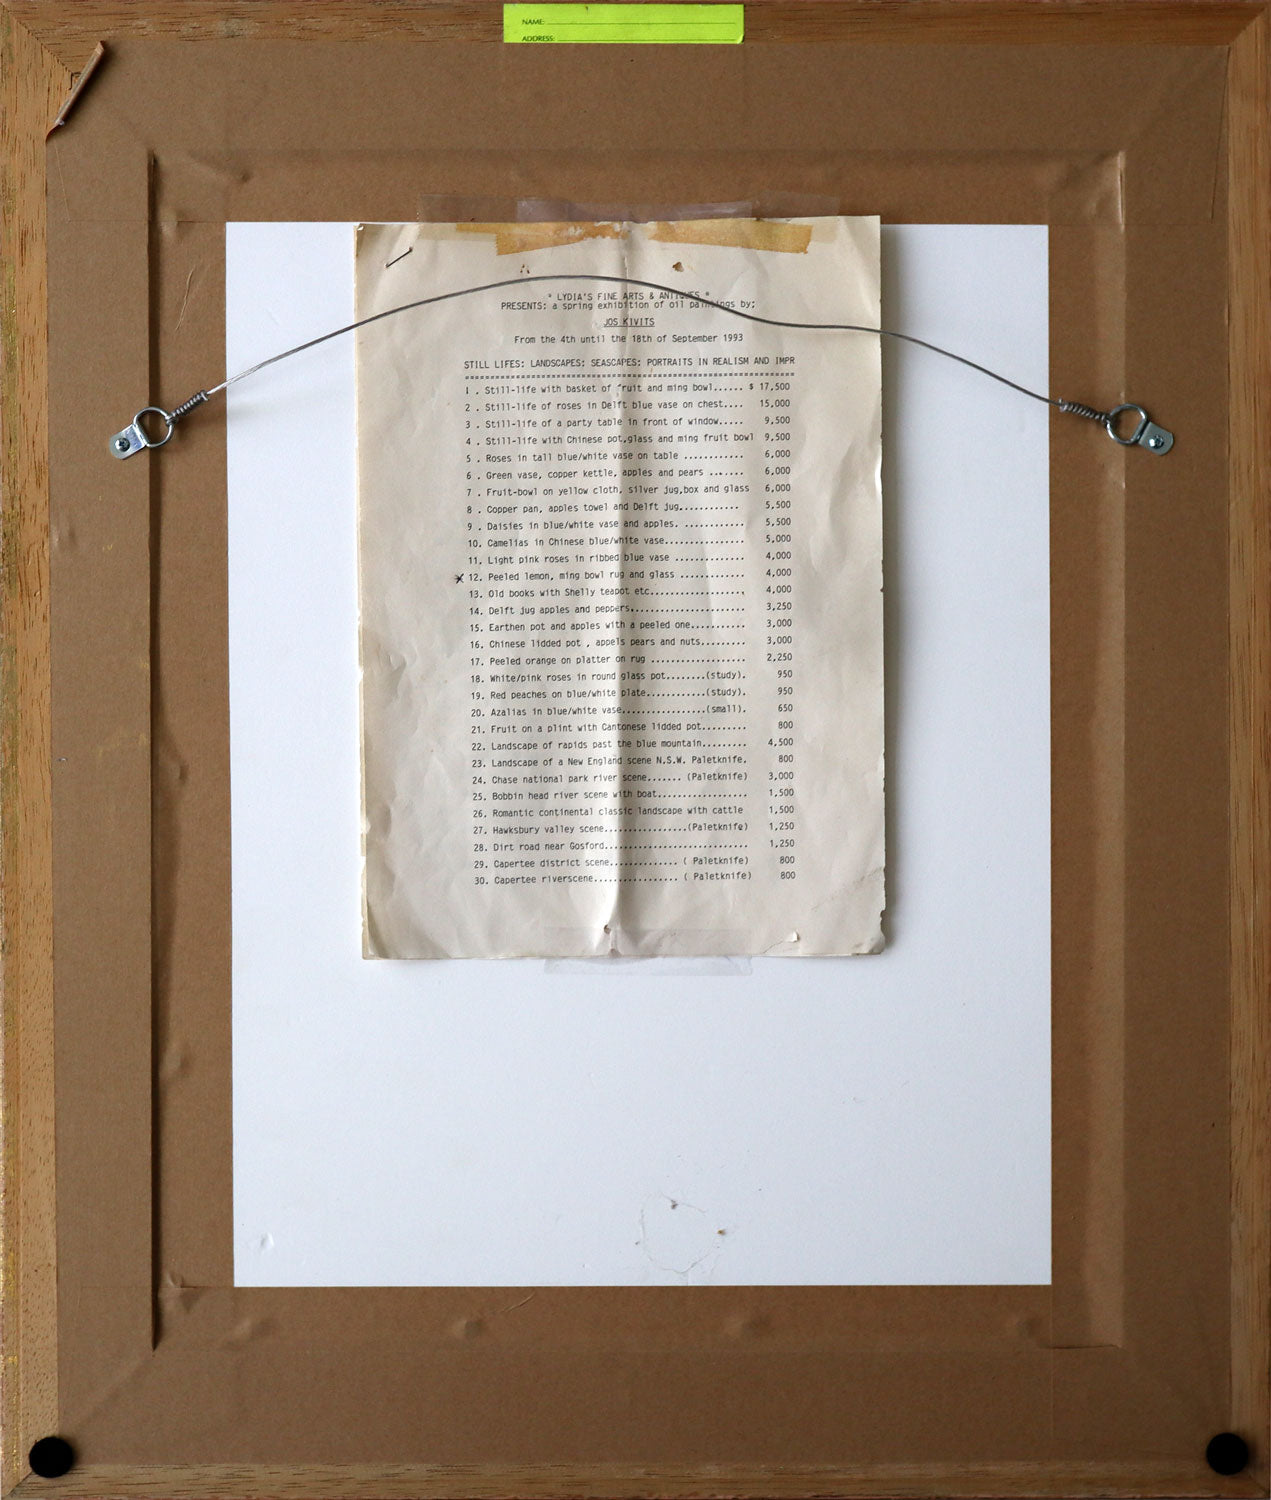 NAME:
ADDRESS:
* LYDIA'S FINE ARTS & ANTIQUES *
PRESENTS: a spring exhibition of oil paintings by;
JOS KIVITS
From the 4th until the 18th of September 1993
STILL LIFES: LANDSCAPES: SEASCAPES: PORTRAITS IN REALISM AND IMPR
1 . Still-life with basket of fruit and ming bowl...... $ 17,500
2 . Still-life of roses in Delft blue vase on chest.... 15,000
3 . Still-life of a party table in front of window..... 9,500
4 . Still-life with Chinese pot,glass and ming fruit bowl 9,500
5 . Roses in tall blue/white vase on table ............ 6,000
6 . Green vase, copper kettle, apples and pears ....... 6,000
7 . Fruit-bowl on yellow cloth, silver jug,box and glass 6,000
8 . Copper pan, apples towel and Delft jug............ 5,500
9 . Daisies in blue/white vase and apples. ............ 5,500
10. Camelias in Chinese blue/white vase................ 5,000
11. Light pink roses in ribbed blue vase .............. 4,000
x 12. Peeled lemon, ming bowl rug and glass ............. 4,000
13. Old books with Shelly teapot etc................... 4,000
14. Delft jug apples and peppers....................... 3,250
15. Earthen pot and apples with a peeled one........... 3,000
16. Chinese lidded pot , appels pears and nuts......... 3,000
17. Peeled orange on platter on rug ................... 2,250
18. White/pink roses in round glass pot........(study). 950
19. Red peaches on blue/white plate............(study). 950
20. Azalias in blue/white vase.................(small). 650
21. Fruit on a plint with Cantonese lidded pot......... 800
22. Landscape of rapids past the blue mountain......... 4,500
23. Landscape of a New England scene N.S.W. Paletknife. 800
24. Chase national park river scene....... (Paletknife) 3,000
25. Bobbin head river scene with boat.................. 1,500
26. Romantic continental classic landscape with cattle 1,500
27. Hawksbury valley scene.................(Paletknife) 1,250
28. Dirt road near Gosford............................. 1,250
29. Capertee district scene.............. ( Paletknife) 800
30. Capertee riverscene................. ( Paletknife) 800